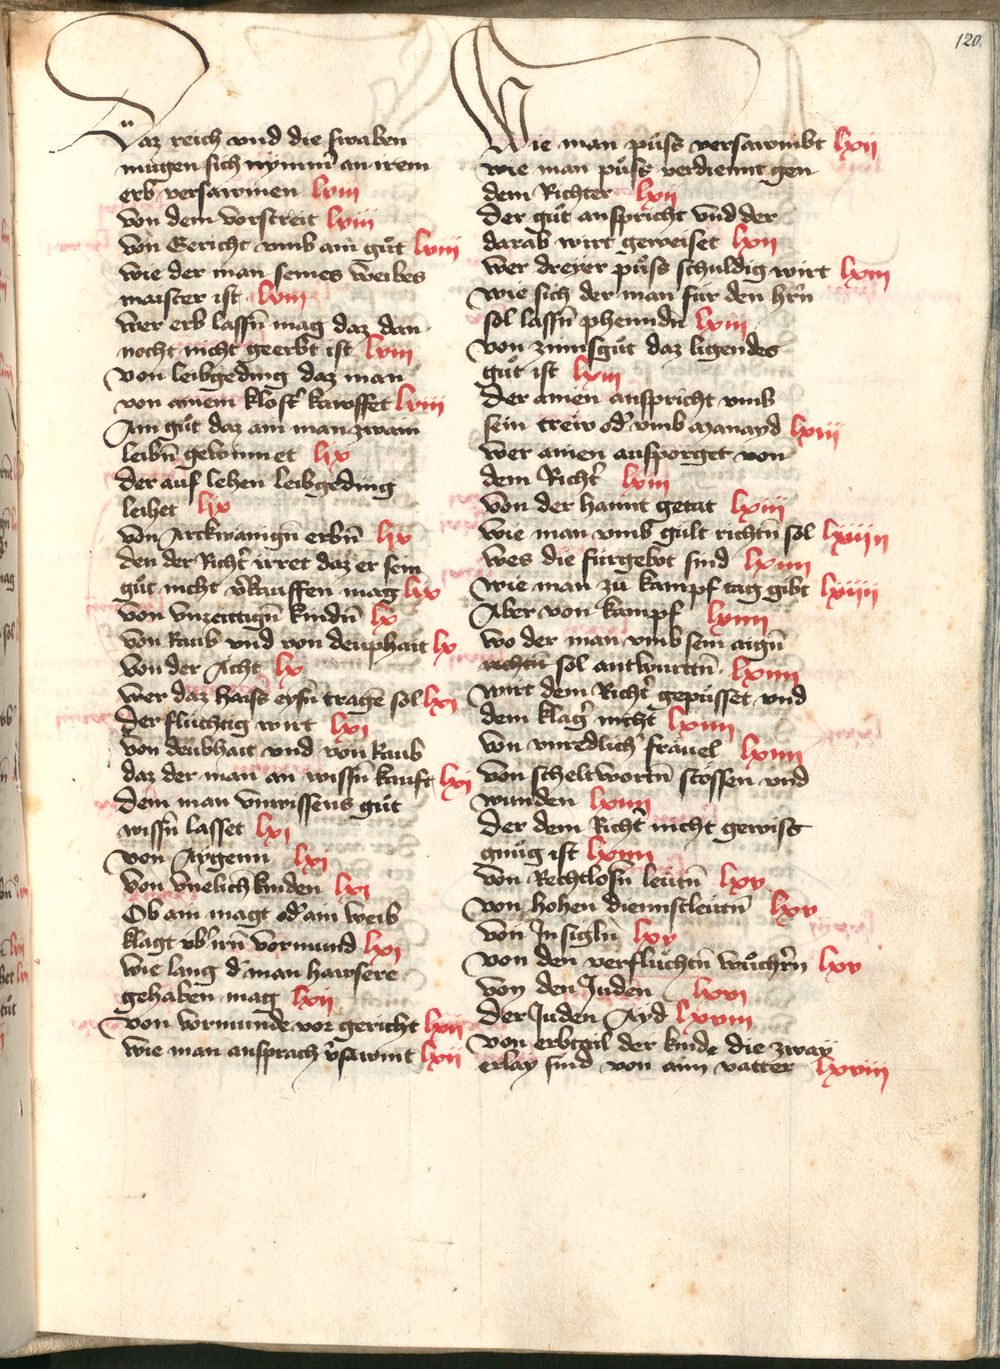 120.
Daz reich vnd die swaben
mugen sich nymm̄ an irem
erb versawmen lviii
von dem vorstreit lviii
von Gericht vmb ain gůt lviii
wie der man seines weibes
maister ist lviii
wer erb lassn̄ mag daz dan
nocht nicht geerbt ist lviii
von leibgeding daz man
von ainem klost' kawffet lviii
Ain gůt daz ain man zwain
leibn̄ gewinnet lix
der auf lehen leibgeding
leihet lix
von Arckwanign̄ erbn̄ lix
den der Richt' irret daz er sein
gůt nicht v'kauffen mag lix
von vnzeittign̄ kindn̄ lx
von Raub vnd von deuphait lx
von der Acht lx
wer daz haiss eysn̄ tragn̄ sol lxi
Der fluchtig wirt lxi
von deubhait vnd von Raub
daz der man an wissn̄ kauft lxi
dem man vnwissens gůt
wissn̄ lasset lxi
von Aygenn lxi
von vnelich kinden lxi
Ob ain magt od' ain weib
klagt vb' irn̄ vormund lxi
wie lang d' man hawsere
gehaben mag lxii
von vormunde vor gericht lxii
wie man ansprach v'sawmt lxii
Wie man půss versawmbt lxii
wie man půss verdiennt gen
dem Richter lxii
der gůt anspricht vnd der
darab wirt geweiset lxii
wer dreyer půss schuldig wirt lxiii
wie sich der man fur den hr̄n
sol lassn̄ phenndn̄ lxiii
von zinnsgůt daz ligendes
gůt ist lxiii
Der ainen anspricht vmb
sein treiw od' vmb Manayd lxiii
wer ainen ausporget von
dem Richt' lxiii
von der hannt getat lxiii
wie man vmb gult richtn̄ sol lxiiii
wes die furgebot sind lxiiii
wie man zu kampf tag gibt lxiiii
Aber von kampf lxiiii
wo der man vmb sein aign̄
rechtn̄ sol antwurttn̄ lxiiii
wirt dem Richt' gepusset vnd
dem klag' nicht lxiiii
von vnredlich' frauel lxiiii
von scheltwortn̄ stossen vnd
wunden lxiiii
Der dem Richt' nicht gewiss
gnůg ist lxiiii
von Rechtlosn̄ leutn̄ lxv
von hohen diennstleutn̄ lxv
von Insigln̄ lxv
von den verflůchtn̄ wůchr̄n lxv
von den Juden lxvi
der Juden Ayd lxviii
von erbtail der kinde die zway
erlay sind von ainn vatter lxviii